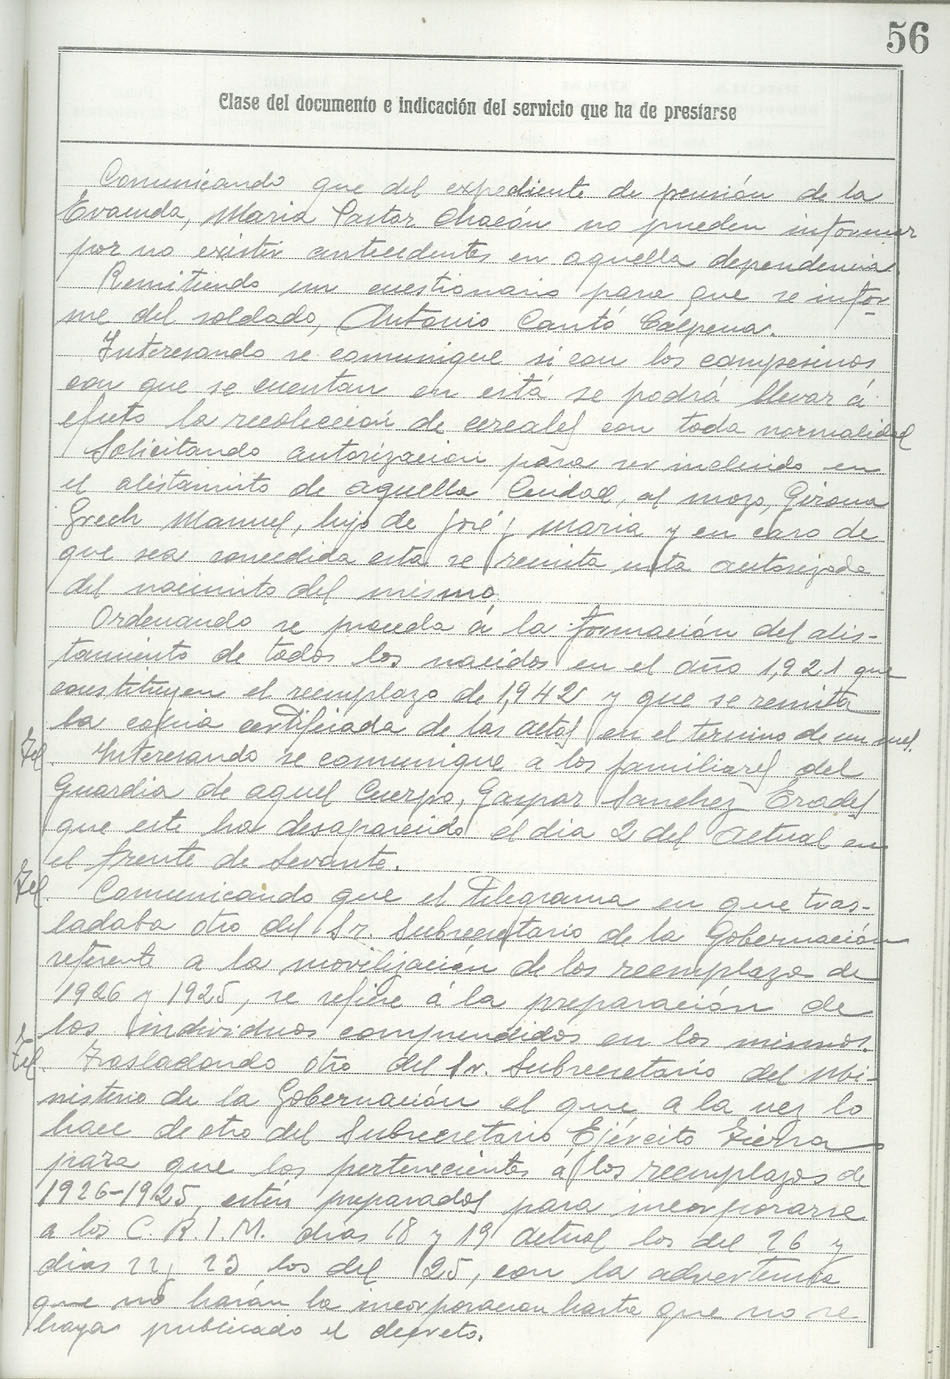 56
Clase del documento e indicación del servicio que ha de prestarse
Comunicando que del expediente de pensión de la
Evacuda, Maria Pastor Chacón no pueden informar
por no existir antecedentes en aquella dependencia.
Remitiendo un cuestionario para que se infor-
me del soldado, Antonio Cantó Calpena.
Interesando se comunique si con los campesinos
con que se cuentan en está se podrá llevar á
efecto la recolección de cereales con toda normalidad
Solicitando autorización para ser incluido en
el alistamito de aquella Ciudad, al mozo, Girona
Grech Manuel, hijo de José y Maria y en caso de
que sea concedida esta se remita nota autorizada
del nacimito del mismo.
Ordenando se proceda á la formación del alis-
tamiento de todos los nacidos en el año 1,921 que
constituyen el reemplazo de 1,942 y que se remita
la copia certificada de las actas en el termino de un mes.
Tel. Interesando se comunique a los familiares del
Guardia de aquel Cuerpo, Gaspar Sanchez Erades
que este ha desaparecido el dia 2 del actual en
el frente de Levante.
Tel. Comunicando que el Telegrama en que tras-
ladaba otro del Sr. Subsecretario de la Gobernación
referente a la movilización de los reemplazos de
1926 y 1925, se refiere á la preparación de
los individuos comprendidos en los mismos.
Tel. Trasladando otro del Sr. Subsecretario del Mi-
nisterio de la Gobernación el que a la vez lo
hace de otro del Subsecretario Ejército Tierra
para que los pertenecientes á los reemplazos de
1926-1925, estén preparados para incorporarse
a los C. R. I. M. dias 18 y 19 actual los del 26 y
dias 22, 23 los del 25, con la advertencia
que no harán la incorporacion hasta que no se
haya publicado el decreto.